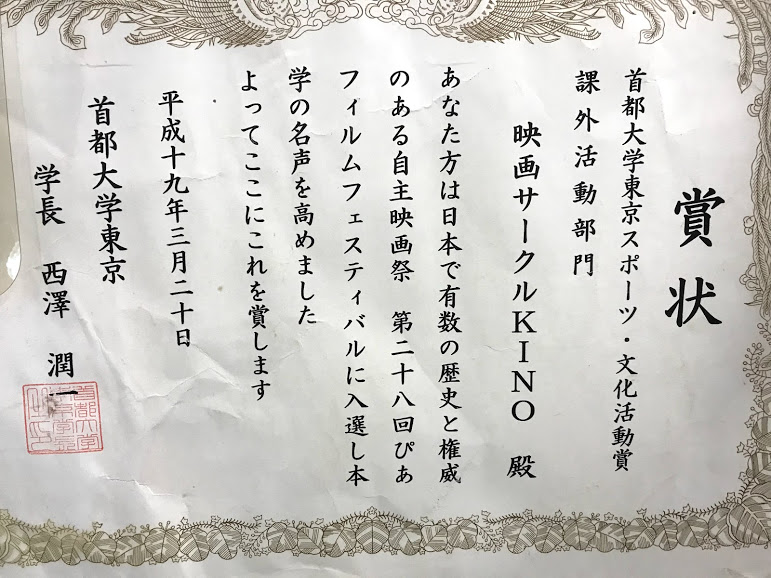 賞状
首都大学東京スポーツ・文化活動賞
課外活動部門
映画サークルKINO 殿
あなた方は日本で有数の歴史と権威
のある自主映画祭 第二十八回ぴあ
フィルムフェスティバルに入選し本
学の名声を高めました
よってここにこれを賞します
平成十九年三月二十日
首都大学東京
学長 西澤 潤一